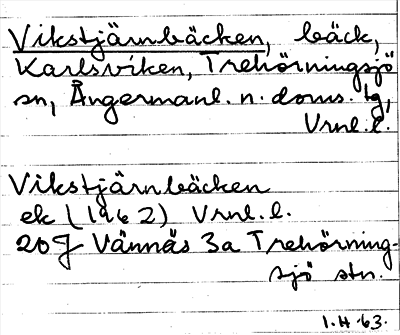 Vikstjärnbäcken, bäck,
Karlsviken, Trehörningsjö
sn, Ångermanl. n. doms. tg,
Vrnl.l.
Vikstjärnbäcken
ek (1962) Vrnl.l.
20J Vännäs 3a Trehörning-
sjö stn.
1.4.63.